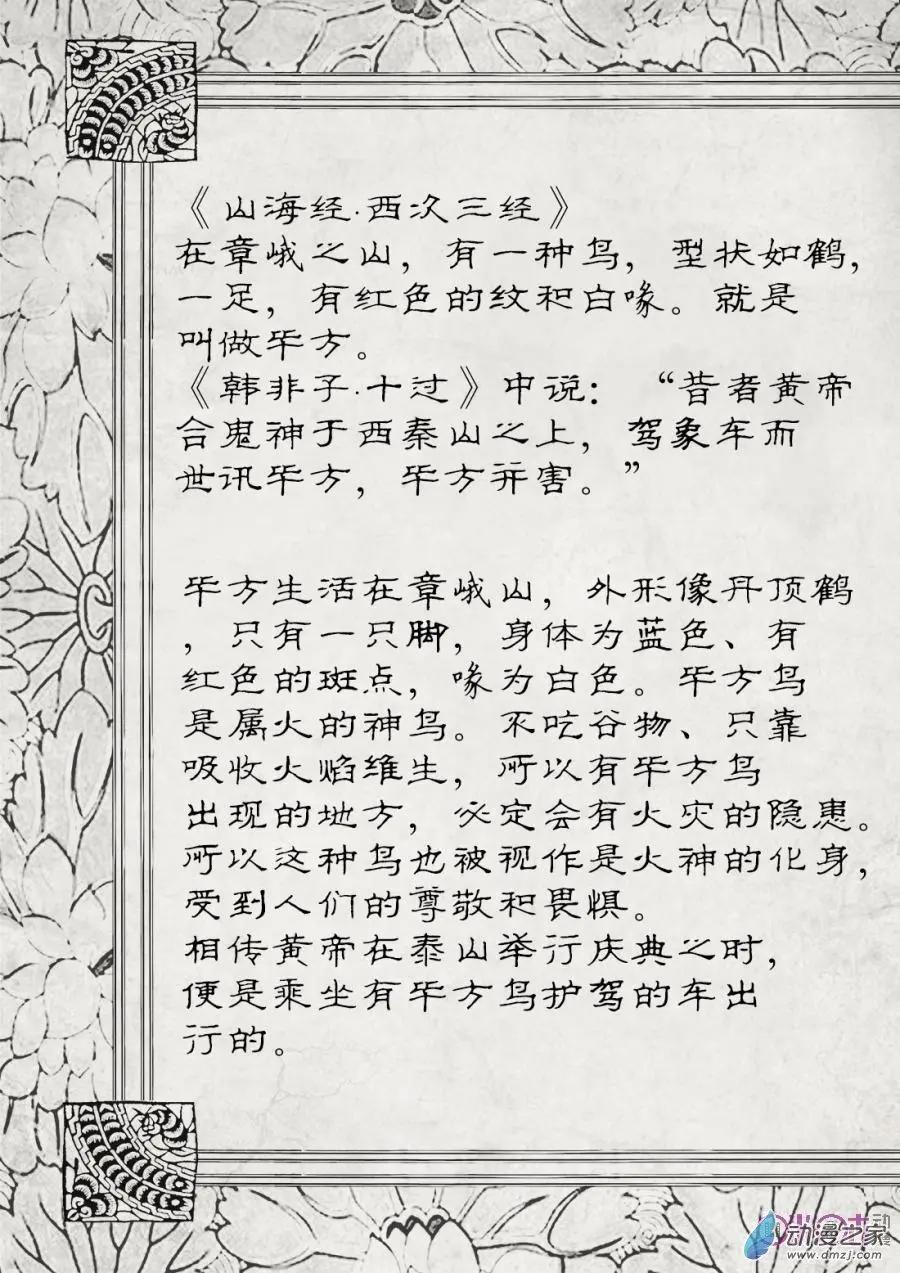 《山海经·西次三经》
在章峨之山，有一种鸟，型状如鹤，
一足，有红色的纹和白喙。就是
叫做毕方。
《韩非子·十过》中说：“昔者黄帝
合鬼神于西秦山之上，驾象车而
世讯毕方，毕方并害。”
毕方生活在章峨山，外形像丹顶鹤
，只有一只脚，身体为蓝色、有
红色的斑点，喙为白色。毕方鸟
是属火的神鸟。不吃谷物、只靠
吸收火焰维生，所以有毕方鸟
出现的地方，必定会有火灾的隐患。
所以这种鸟也被视作是火神的化身，
受到人们的尊敬和畏惧。
相传黄帝在泰山举行庆典之时，
便是乘坐有毕方鸟护驾的车出
行的。
动漫之家
www.dmzj.com